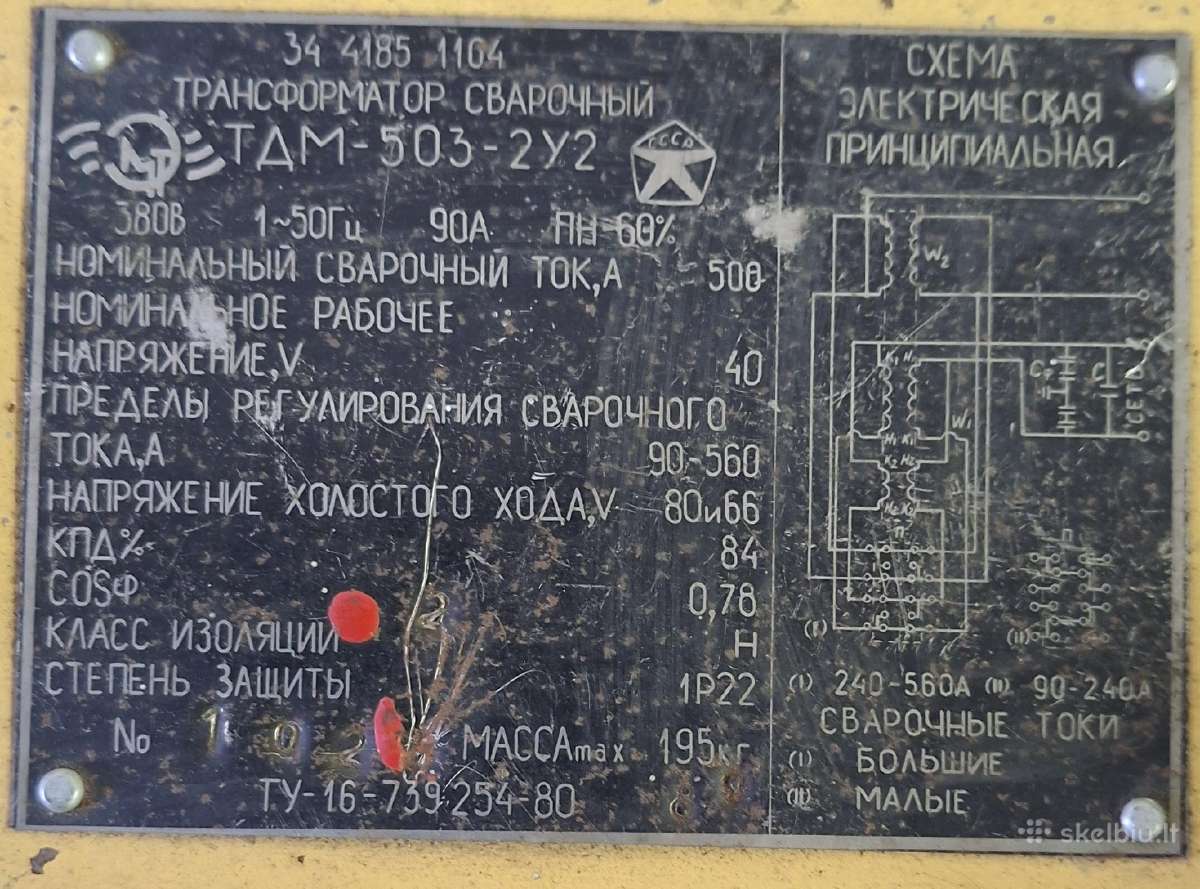 34 4185 1104
ТРАНСФОРМАТОР СВАРОЧНЫЙ
ТДМ-503-2У2
СССР
380В 1~50Гц 90А ПН-60%
НОМИНАЛЬНЫЙ СВАРОЧНЫЙ ТОК,А 500
НОМИНАЛЬНОЕ РАБОЧЕЕ
НАПРЯЖЕНИЕ,V 40
ПРЕДЕЛЫ РЕГУЛИРОВАНИЯ СВАРОЧНОГО
ТОКА,А 90-560
НАПРЯЖЕНИЕ ХОЛОСТОГО ХОДА,V 80и66
КПД% 84
COSФ 0,78
КЛАСС ИЗОЛЯЦИИ Н
СТЕПЕНЬ ЗАЩИТЫ 1Р22
№ 102 МАССАmax 195кг
ТУ-16-739.254-80
СХЕМА
ЭЛЕКТРИЧЕСКАЯ
ПРИНЦИПИАЛЬНАЯ
W2
К1 Н1
С
СЕТЬ
W1
Н1 К1
К2 Н2
Н2 К2
П
П
(I) (II)
(I) 240-560А (II) 90-240А
СВАРОЧНЫЕ ТОКИ
(I) БОЛЬШИЕ
(II) МАЛЫЕ
skelbiu.lt